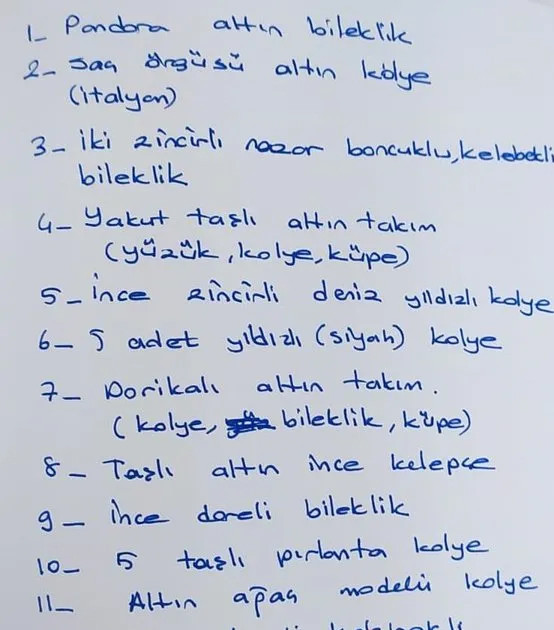 1- Pandora altın bileklik
2- saç örgüsü altın kolye
(italyan)
3- iki zincirli nazar boncuklu, kelebekli
bileklik
4- Yakut taşlı altın takım
(yüzük, kolye, küpe)
5- İnce zincirli deniz yıldızlı kolye
6- 5 adet yıldızlı (siyah) kolye
7- Dorikalı altın takım.
(kolye, bileklik, küpe)
8- Taşlı altın ince kelepçe
9- İnce doreli bileklik
10- 5 taşlı pırlanta kolye
11- Altın ağaç modeli kolye